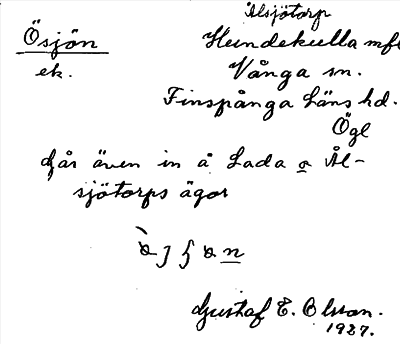 Ålsjötorp
Ösjön Hundekulla mfl
ek. Vånga sn.
Finspånga läns hd.
Ögl
Går även in å Lada o Ål-
sjötorps ägor
Gustaf E. Olsson.
1927.